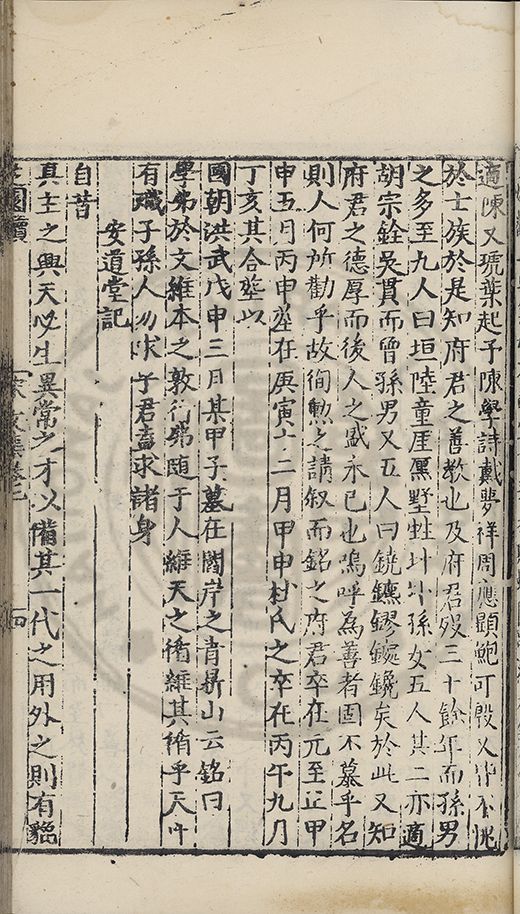 適陳又琥葉起予陳學詩戴夢祥周應顯鮑可殷又
於士族於是知府君之善教也及府君歿三十餘年而孫男
之多至九人曰垣陸童厓厲野
孫女五人其二亦適
胡宗銓吳貫而曾孫男又五人曰鐃鑣鏐鋺鑱矣於此又知
府君之德厚而後人之盛未已也嗚呼為善者固不慕乎名
則人何所勸乎故徇勲之請叙而銘之府君卒在元至正甲
申五月丙申塟在庚寅十二月甲申杜氏之卒在丙午九月
丁亥其合塟以
國朝洪武戊申三月某甲子墓在閣岸之青
山云銘曰
學弗於文維本之敦行弗隨于人維天之循維其循乎天
有職子孫人勿求予君盍求諸身
安道堂記
自昔
真主之興天必生異常之才以備其一代之用外之則有貔
四